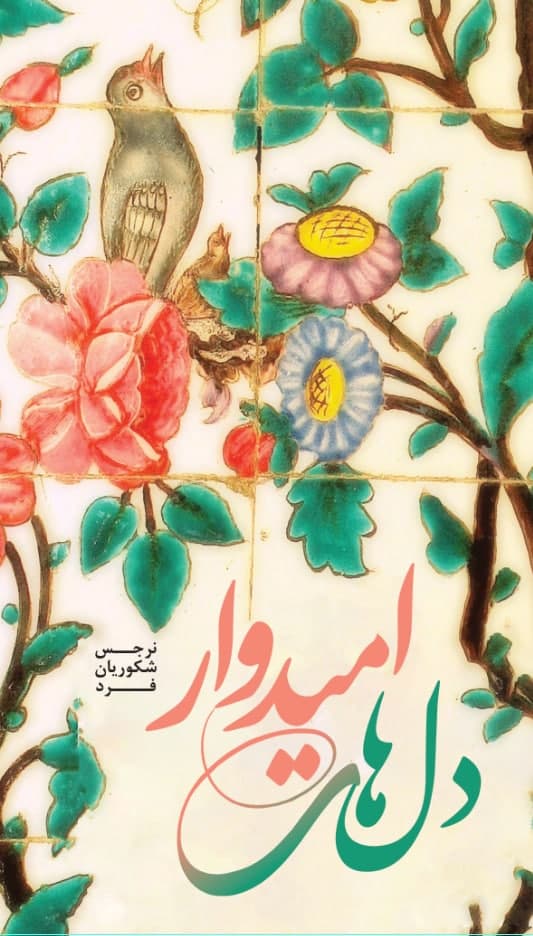 دل‌های
امیدوار
نرجس
شکوریان
فرد